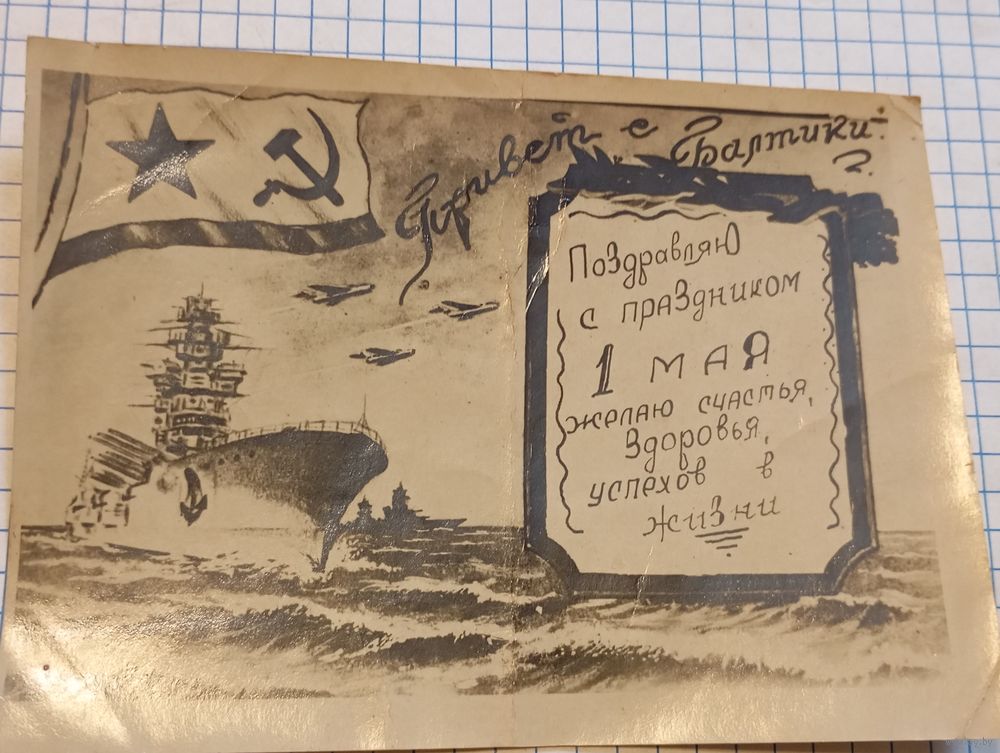 Привет с Балтики!
Поздравляю
с праздником
1 МАЯ
желаю счастья,
здоровья,
успехов в
жизни